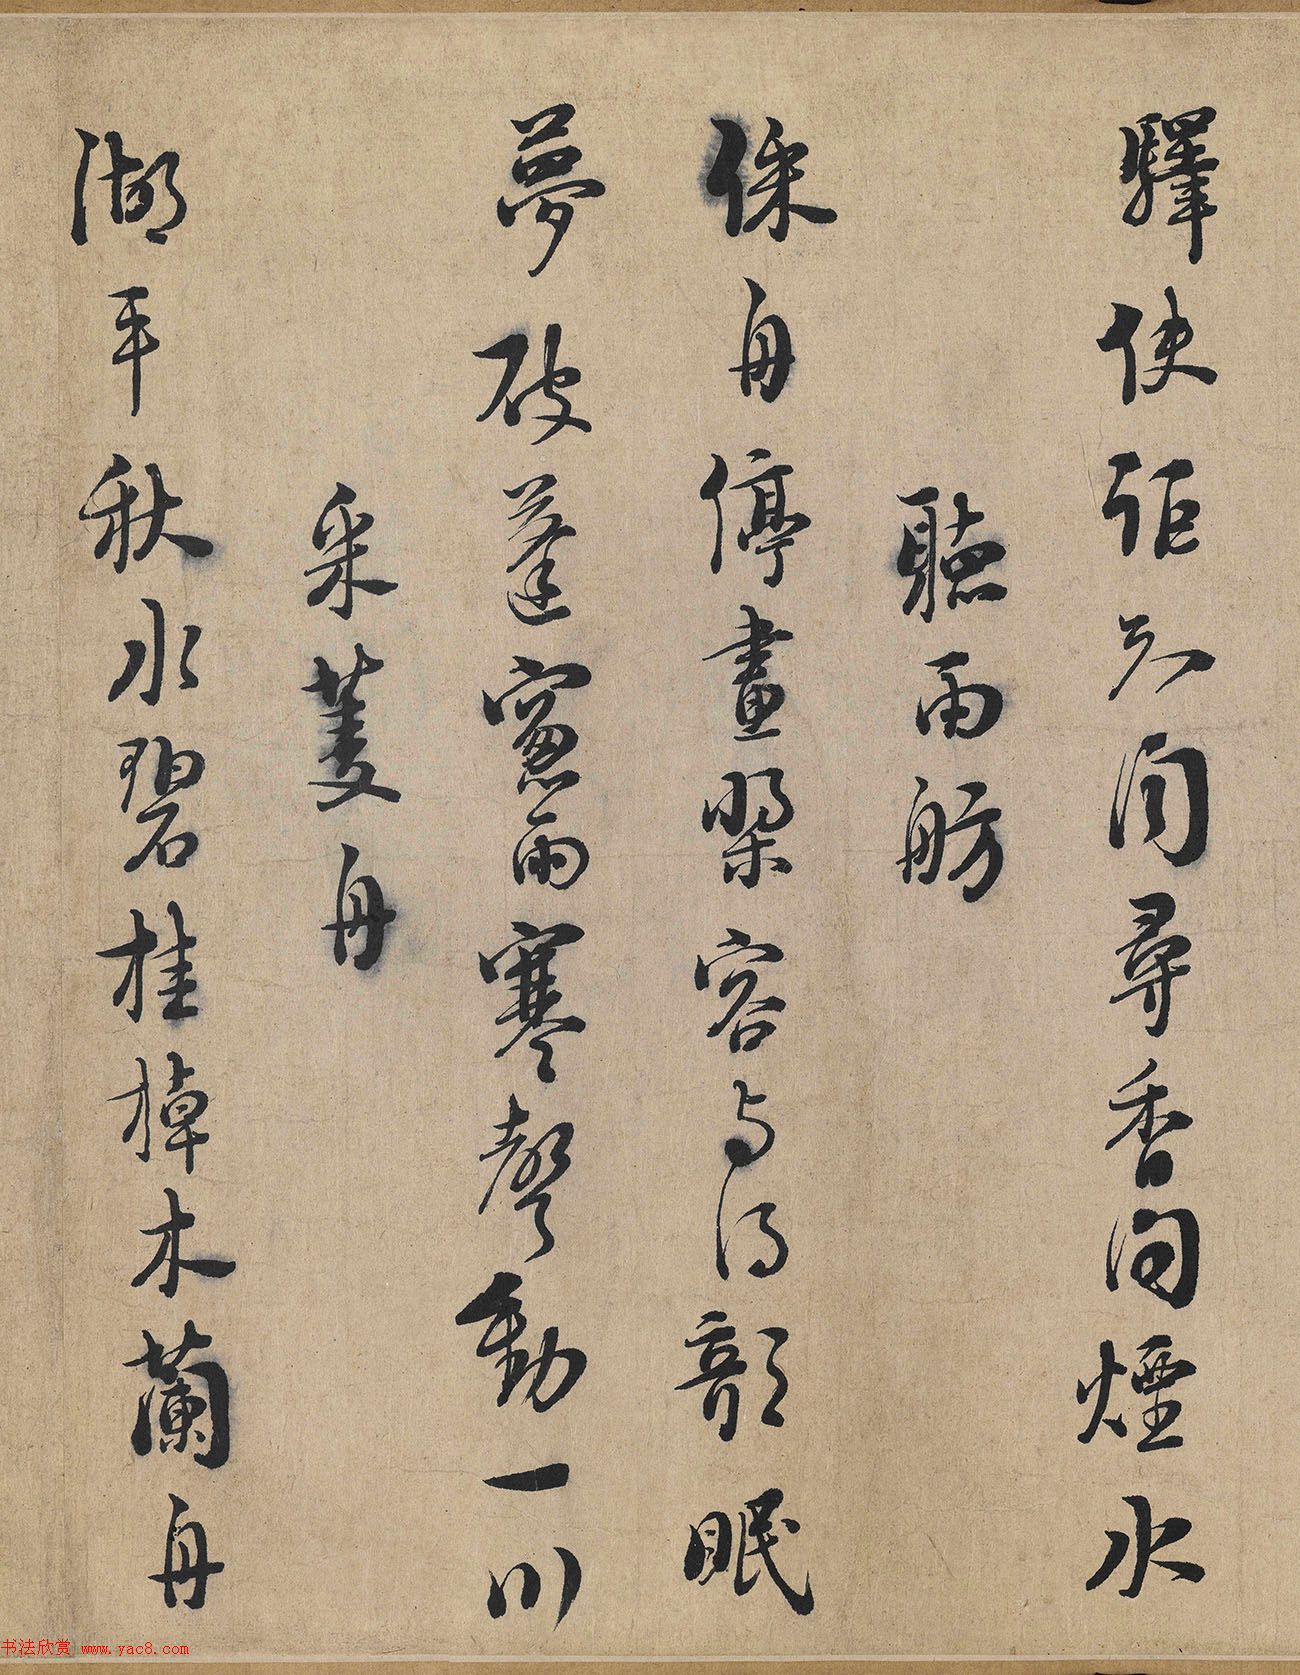 驛使詎知聞尋香問煙水
聽雨舫
綵舟停畫槳容与得欹眠
夢破蓬窻雨寒聲動一川
采菱舟
湖平秋水碧桂棹木蘭舟
书法欣赏 www.yac8.com